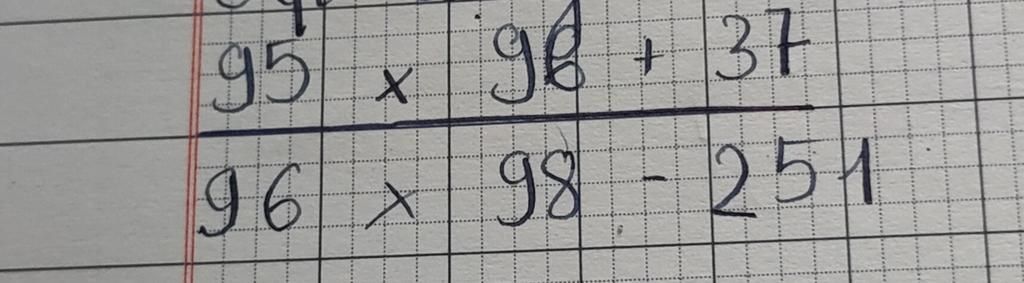 95 × 96 + 37
96 × 98 - 251